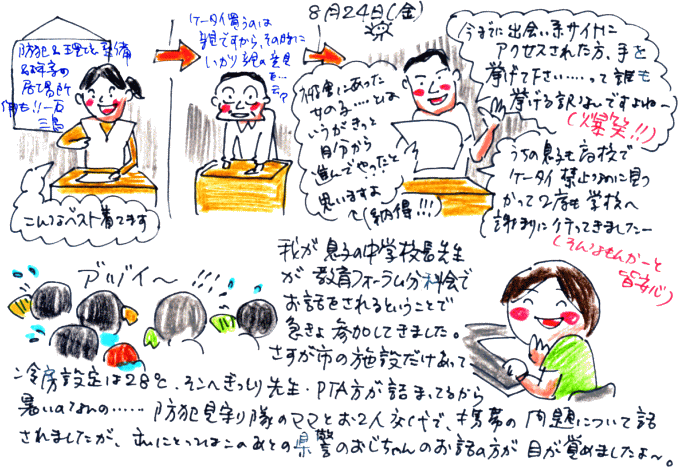 8月24日(金)
防犯と環境整備
居場所
ケータイ買うのは
親ですから、その時に
しっかり親の意見
を…
こんなベスト着てます
被害にあった
女の子…とは
いうがきっと
自分から
進んでやったと
思いますよ
へ(納得!!!)
今までに出会い系サイトに
アクセスされた方、手を
挙げて下さい……って誰も
挙げる訳なんですよね〜
(爆笑!!)
うちの息子も高校で
ケータイ禁止なのに見つ
かって2度も学校へ
謝りに行ってきました〜
(そんなもんかーと
皆安心)
アヂヂイ〜
我が息子の中学校長先生
が教育フォーラム分科会で
お話をされるということで
急きょ参加してきました。
さすが市の施設だけあって
冷房設定は28℃、そこへぎっしり先生・PTA方が詰まってるから
暑いのなんの……防犯見守り隊のママとお2人交代で、携帯の問題について話
されましたが、私にとってはこのあとの県警のおじちゃんのお話の方が目が覚めましたよ〜。